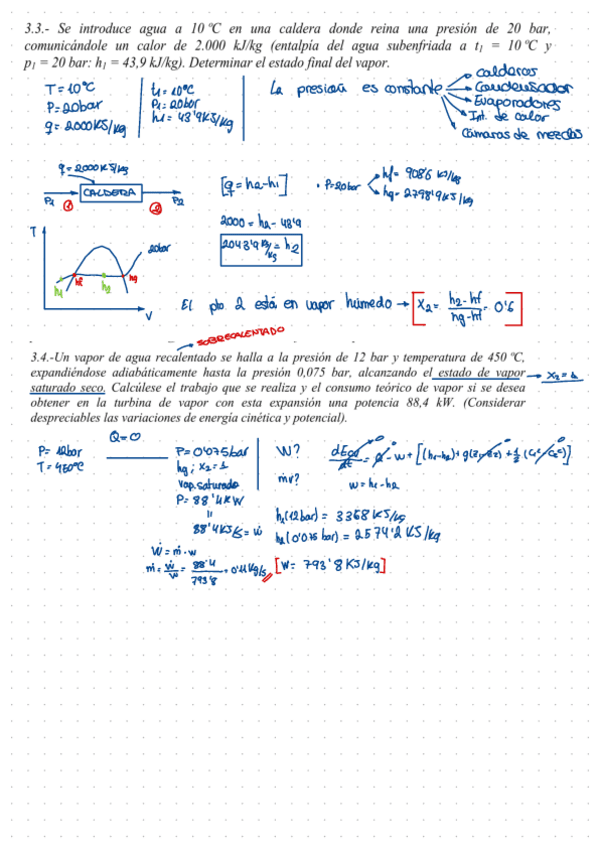 3.3.- Se introduce agua a 10 ºC en una caldera donde reina una presión de 20 bar,
comunicándole un calor de 2.000 kJ/kg (entalpía del agua subenfriada a t1 = 10 ºC y
p1 = 20 bar: h1 = 43,9 kJ/kg). Determinar el estado final del vapor.
T = 10ºC
P = 20bar
q = 2000KJ/kg
t1 = 10ºC
P1 = 20bar
h1 = 43'9KJ/kg
La presión es constante
calderas
Condensador
Evaporadores
Int. de calor
Cámaras de mezclas
q = 2000KJ/kg
P1 CALDERA P2
1 2
[q = h2-h1]
• P=20bar
hf = 908'6 KJ/kg
hg = 2798'9 KJ/kg
2000 = h2 - 43'9
2043'9 KJ/kg = h2
T
20bar
h1 hf h2 hg
V
El pto 2 está en vapor húmedo → [X2 = h2-hf / hg-hf = 0'6]
SOBRECALENTADO
3.4.-Un vapor de agua recalentado se halla a la presión de 12 bar y temperatura de 450 ºC,
expandiéndose adiabáticamente hasta la presión 0,075 bar, alcanzando el estado de vapor
saturado seco. Calcúlese el trabajo que se realiza y el consumo teórico de vapor si se desea
obtener en la turbina de vapor con esta expansión una potencia 88,4 kW. (Considerar
despreciables las variaciones de energía cinética y potencial).
X2 = 1
P = 12bar
T = 450ºC
Q = 0
P = 0'075bar
hg; X2 = 1
Vap. saturado
P = 88'4KW
=
88'4KJ/s = ẇ
W?
ṁv?
w = h1-h2
h1(12bar) = 3368 KJ/kg
h2(0'075 bar) = 2574'2 KJ/kg
[W = 793'8 KJ/kg]
Ẇ = ṁ · w
ṁ = Ẇ/W = 88'4/793'8 = 0'11 kg/s